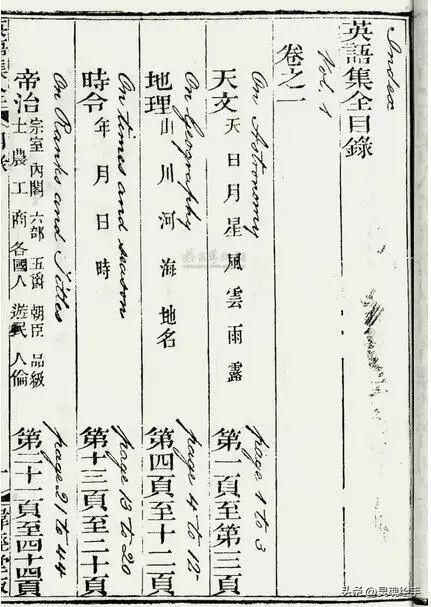 Index
英語集全目錄
Vol. 1
卷之一
On Astronomy
天文 天日月星風雲雨露
page 1 to 3
第一頁至第三頁
On Geography
地理 山川河海地名
page 4 to 12
第四頁至十二頁
On times and season
時令 年月日時
page 13 to 20
第十三頁至二十頁
On Ranks and Titles
帝治 宗室 內閣 六部 五爵 朝臣 品級
士農工商 各國人 遊民 人倫
page 21 to 44
第二十一頁至四十四頁
头条 @灵魂绘手